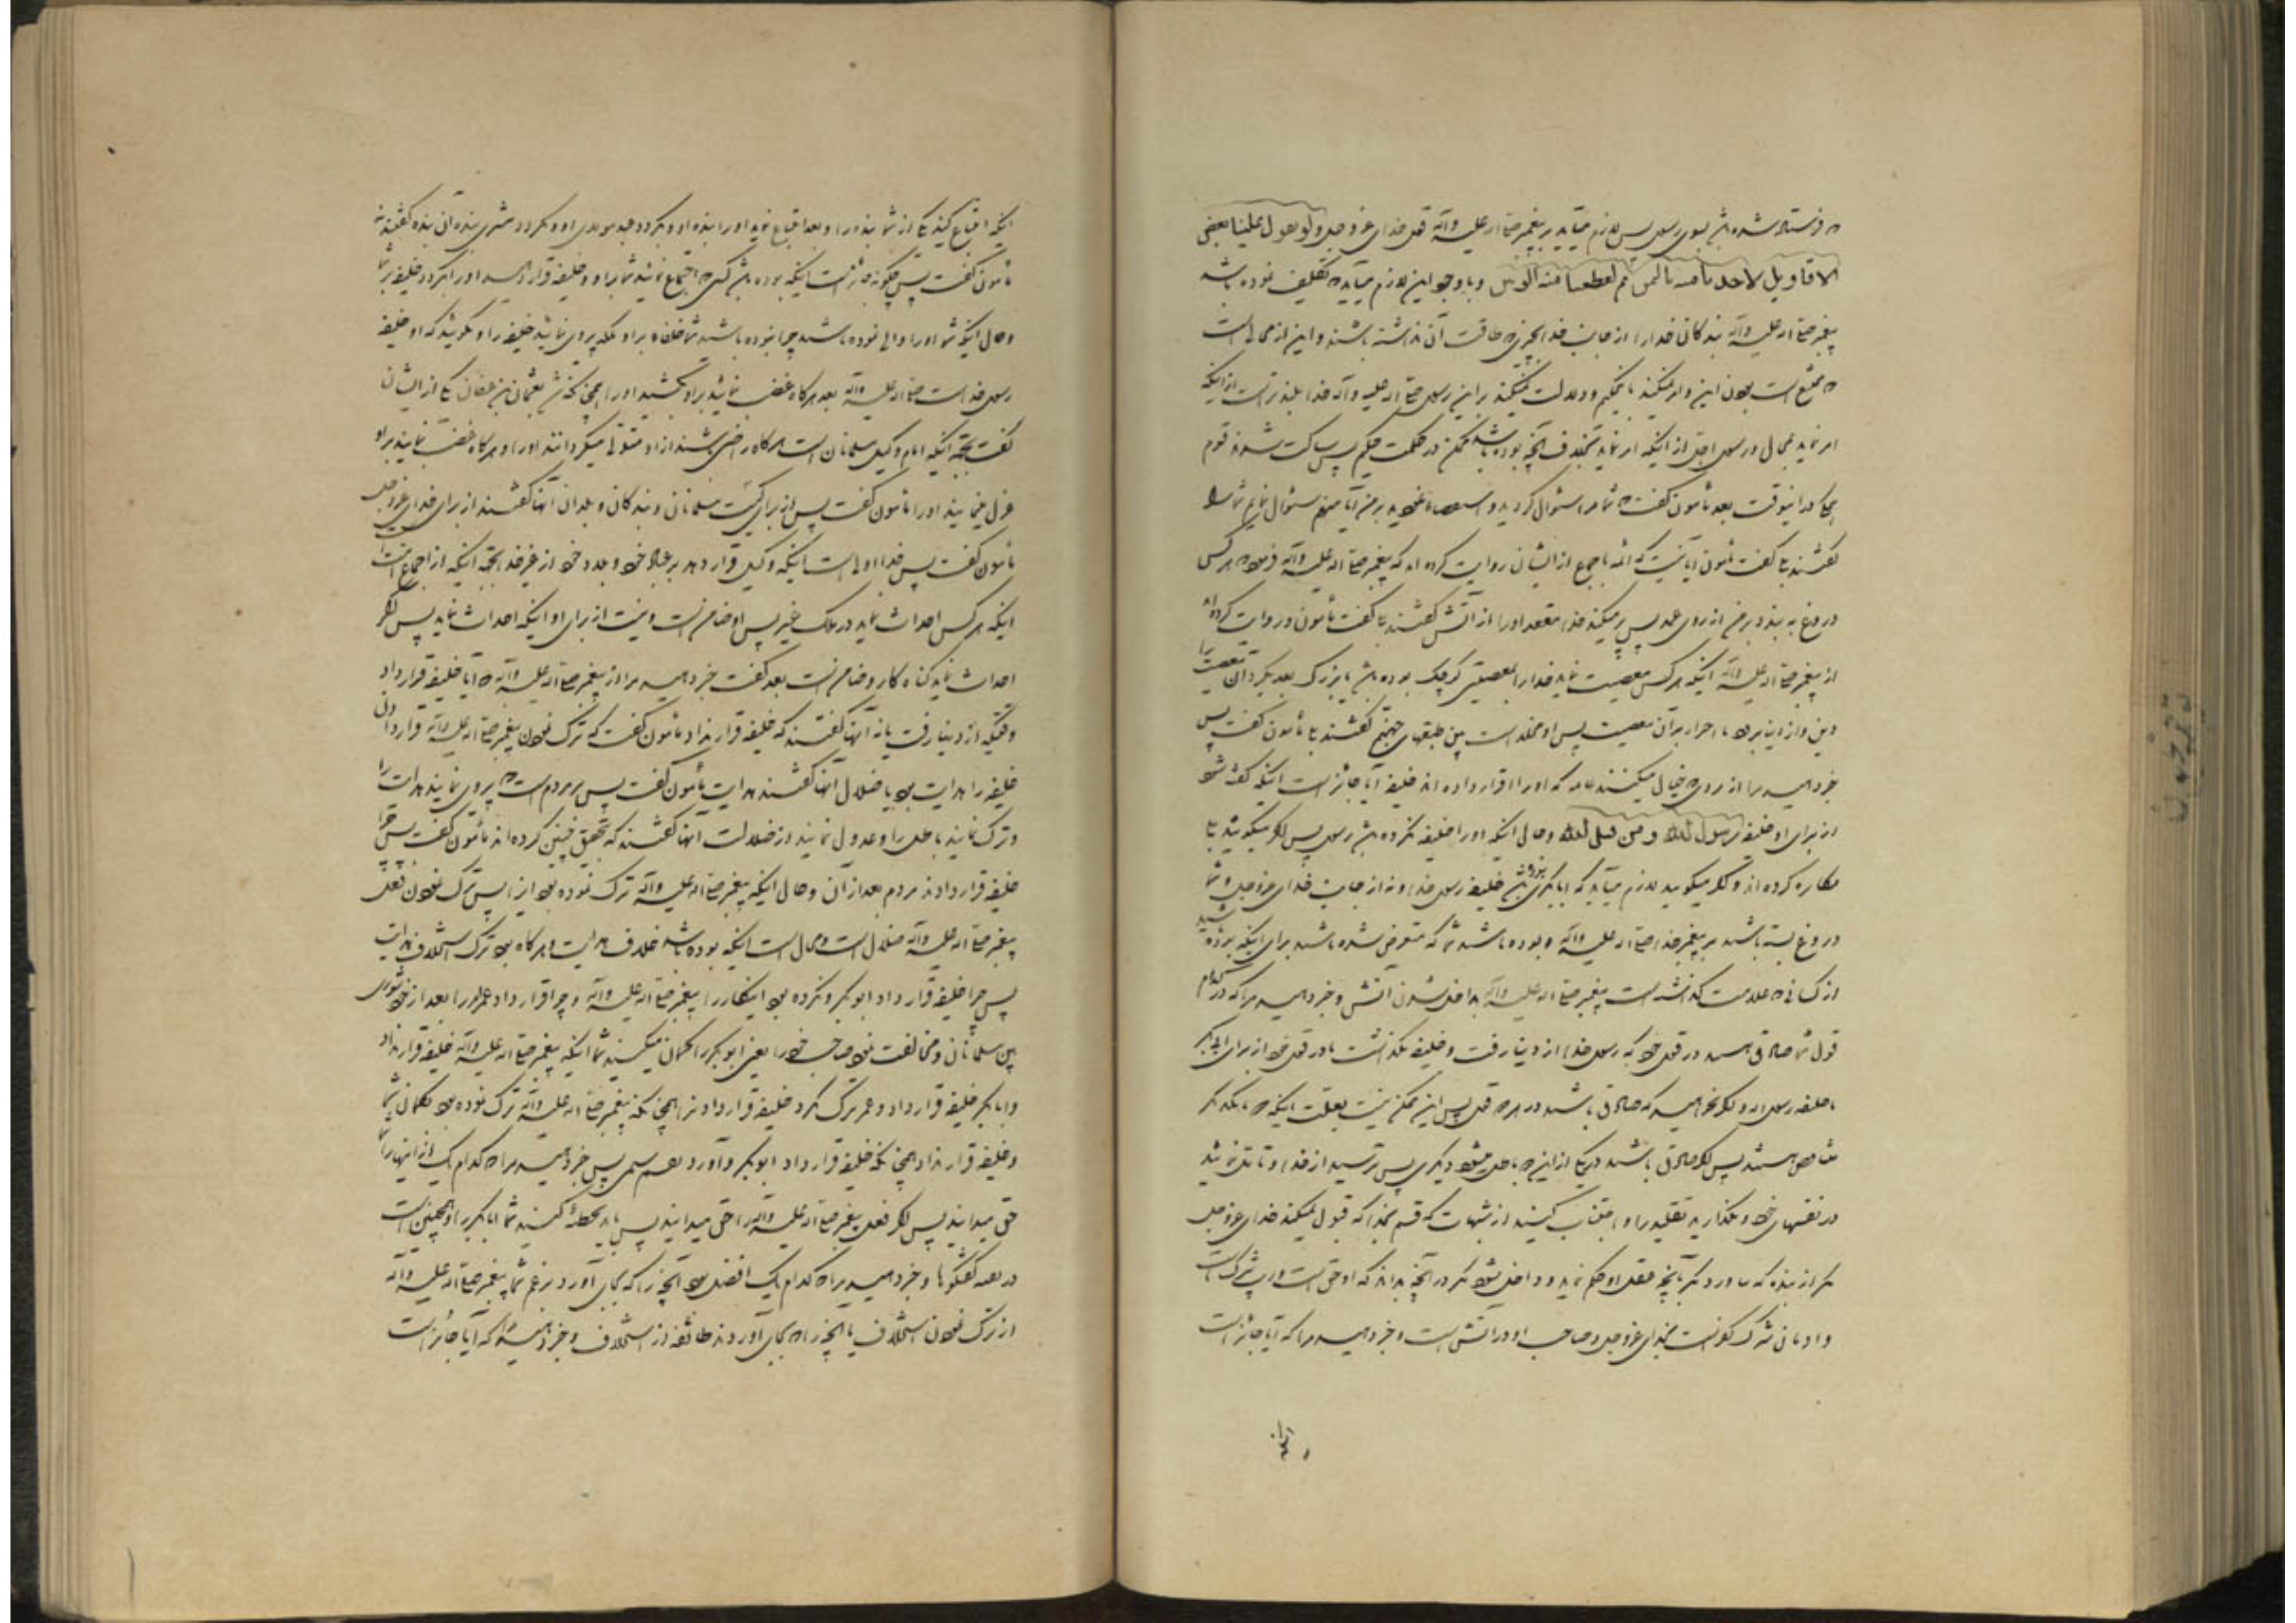 که فرستاده شده باشد بسوی رسول پس لازم میآید بر پیغمبر صلی الله علیه وآله قول خدای عزوجل ولو تقول علینا بعض
الاقاویل لاخذنا منه بالیمین ثم لقطعنا منه الوتین و با وجود این لازم میآید که تکلیف نموده باشد
پیغمبر صلی الله علیه وآله بندگان خدا را از جانب خدا بچیزی که طاقت آن نداشته باشند و این از محالی است
که ممتنع است بودن این و امر میکند با حکیم و دلالت میکند بر این رسول صلی الله علیه وآله خدا بلندتر است از اینکه
امر نماید بمحال و رسول اجل از اینکه امر نماید بخلاف آنچه بوده باشد ممکن در حکمت حکیم پس ساکت شدند قوم
در اینوقت بعد مأمون گفت که شما مرا سئوال کردید و بر من آیا منهم سئوال نمایم شما را
گفتند بلی گفت مأمون آیا نیست که ائمه باجمع از ایشان روایت کرده‌اند که پیغمبر صلی الله علیه وآله فرمود هر کس
دروغ به بندد بر من از روی عمد پس پر میکند خدا مقعد او را از آتش گفتند بلی گفت مأمون و روایت کرده‌اند
از پیغمبر صلی الله علیه وآله اینکه هر کس معصیت نماید خدا را بمعصیتی کوچک بوده باشد یا بزرگ بعد بگرداند آن معصیت را
دین و از دنیا برود با اصرار بر آن معصیت پس او مخلد است بین طبقهای جهنم گفتند بلی مأمون گفت پس
خبر دهید مرا از مردی که خیال میکنند عامه که او را قرار داده‌اند خلیفه آیا جائز است اینکه گفته شود
از برای او خلیفه رسول الله و من قبل الله و حال اینکه او را خلیفه نکرده باشد رسول پس اگر میگوئید بلی
مکابره کرده‌اید و اگر میگوئید لازم میآید که ابابکر نبوده باشد خلیفه رسول خدا و نه از جانب خدای عزوجل و شما
دروغ بسته باشید بر پیغمبر خدا صلی الله علیه وآله و بوده باشید شما که متعرض شده باشید برای اینکه بوده باشید
از کسانی که علامت گذاشته است پیغمبر صلی الله علیه وآله بداخل شدن آتش و خبر دهید مرا که در کدام
قول شما صادق هستید در قول خود که رسول خدا از دنیا رفت و خلیفه نگذاشت یا در قول خود از برای ابی بکر
یا خلیفه رسول الله و اگر نخواهید که صادق باشید در هر دو قول پس این ممکن نیست بعلت اینکه هر یک دیگر
متناقض هستند پس اگر صادق باشید در یکی از این دو باطل میشود دیگری پس ترسید از خدا و تأمل نمائید
در نفسهای خود و بگذارید تقلید را و اجتناب کنید از شبهات که قسم بخدا که قبول نمیکند خدای عزوجل
مگر از بنده که نیاورد مگر بآنچه عقل او حکم نماید و داخل نشود مگر در آنچه بداند که او حق است و ریب شرک است
و ادمانی شرک کفر است بخدای عزوجل و صاحب او در آتش است و خبر دهید مرا که آیا جائز است
اینکه ابتیاع کند یکی از شما بنده را و بعد ابتیاع نماید او را بنده او و بگردد عبد مولای او و بگردد مشتری بنده آن بنده گفتند نه
مأمون گفت پس چگونه جائز است اینکه بوده باشد کسی که اجتماع نمائید شما بر او و خلیفه قرار دهید او را بگردد خلیفه بر شما
و حال اینکه شما او را والی نموده باشید چرا نبوده باشید شما خلفاء بر او بلکه پیروی نمائید خلیفه را و بگوئید که او خلیفه
رسول خداست صلی الله علیه وآله بعد هر گاه غضب نمائید بر او بکشید او را همچنانکه شد بعثمان بن عفان یکی از ایشان
گفت بجهة اینکه امام وکیل مسلمانان است هر گاه راضی باشند از او متولی میگردانند او را و هر گاه غضب نمایند بر او
عزل مینمایند او را مأمون گفت پس از برای کیست مسلمانان و بندگان و بلدان آنها گفتند از برای خدای عزوجل
مأمون گفت پس خدا اولی است اینکه وکیل قرار دهد بر عباد خود و بلاد خود از غیر خدا بجهة اینکه از اجماع امت است
اینکه هر کس احداث نماید در ملک غیر پس او ضامن است و نیست از برای او اینکه احداث نماید پس اگر
احداث نماید گناه کار و ضامن است بعد گفت خبر دهید مرا از پیغمبر صلی الله علیه وآله که آیا خلیفه قرار داد
وقتیکه از دنیا رفت یا نه آنها گفتند که خلیفه قرار نداد مأمون گفت که ترک نمودن پیغمبر صلی الله علیه وآله قرار دادن
خلیفه را هدایت بود یا ضلال آنها گفتند هدایت مأمون گفت پس بر مردم است که پیروی نمایند هدایت را
و ترک نمایند باطل را و عدول نمایند از ضلالت آنها گفتند که بتحقیق چنین کرده‌اند مأمون گفت پس چرا
خلیفه قرار دادند مردم بعد از آن و حال اینکه پیغمبر صلی الله علیه وآله ترک نموده بود این را پس ترک نمودن فعل
پیغمبر صلی الله علیه وآله ضلال است و محال است اینکه بوده باشد خلاف هدایت و هر گاه بود ترک استخلاف هدایت
پس چرا خلیفه قرار داد ابوبکر و نکرده بود اینکار را پیغمبر صلی الله علیه وآله و چرا قرار داد عمر امر را بعد از خود شوری
بین مسلمانان و مخالفت نمود صاحب خود را یعنی ابوبکر را گمان میکنید شما اینکه پیغمبر صلی الله علیه وآله خلیفه قرار نداد
و ابابکر خلیفه قرار داد و عمر ترک نکرد خلیفه قرار دادن را همچنانکه پیغمبر صلی الله علیه وآله ترک نموده بود بگمان شما
و خلیفه قرار نداد همچنانکه خلیفه قرار داد ابوبکر و آورد بقسم سیمی پس خبر دهید مرا که کدام یک از اینها را شما
حق میدانید پس اگر فعل پیغمبر صلی الله علیه وآله را حق میدانید پس باید تخطئه کنید شما ابابکر را و همچنین است
در بقیه گفتگوها و خبر دهید مرا که کدام یک افضل بود آنچه را که بجای آورد بزعم شما پیغمبر صلی الله علیه وآله
از ترک نمودن استخلاف یا آنچه را که بجای آوردند طائفه از استخلاف و خبر دهید مرا که آیا جائز است